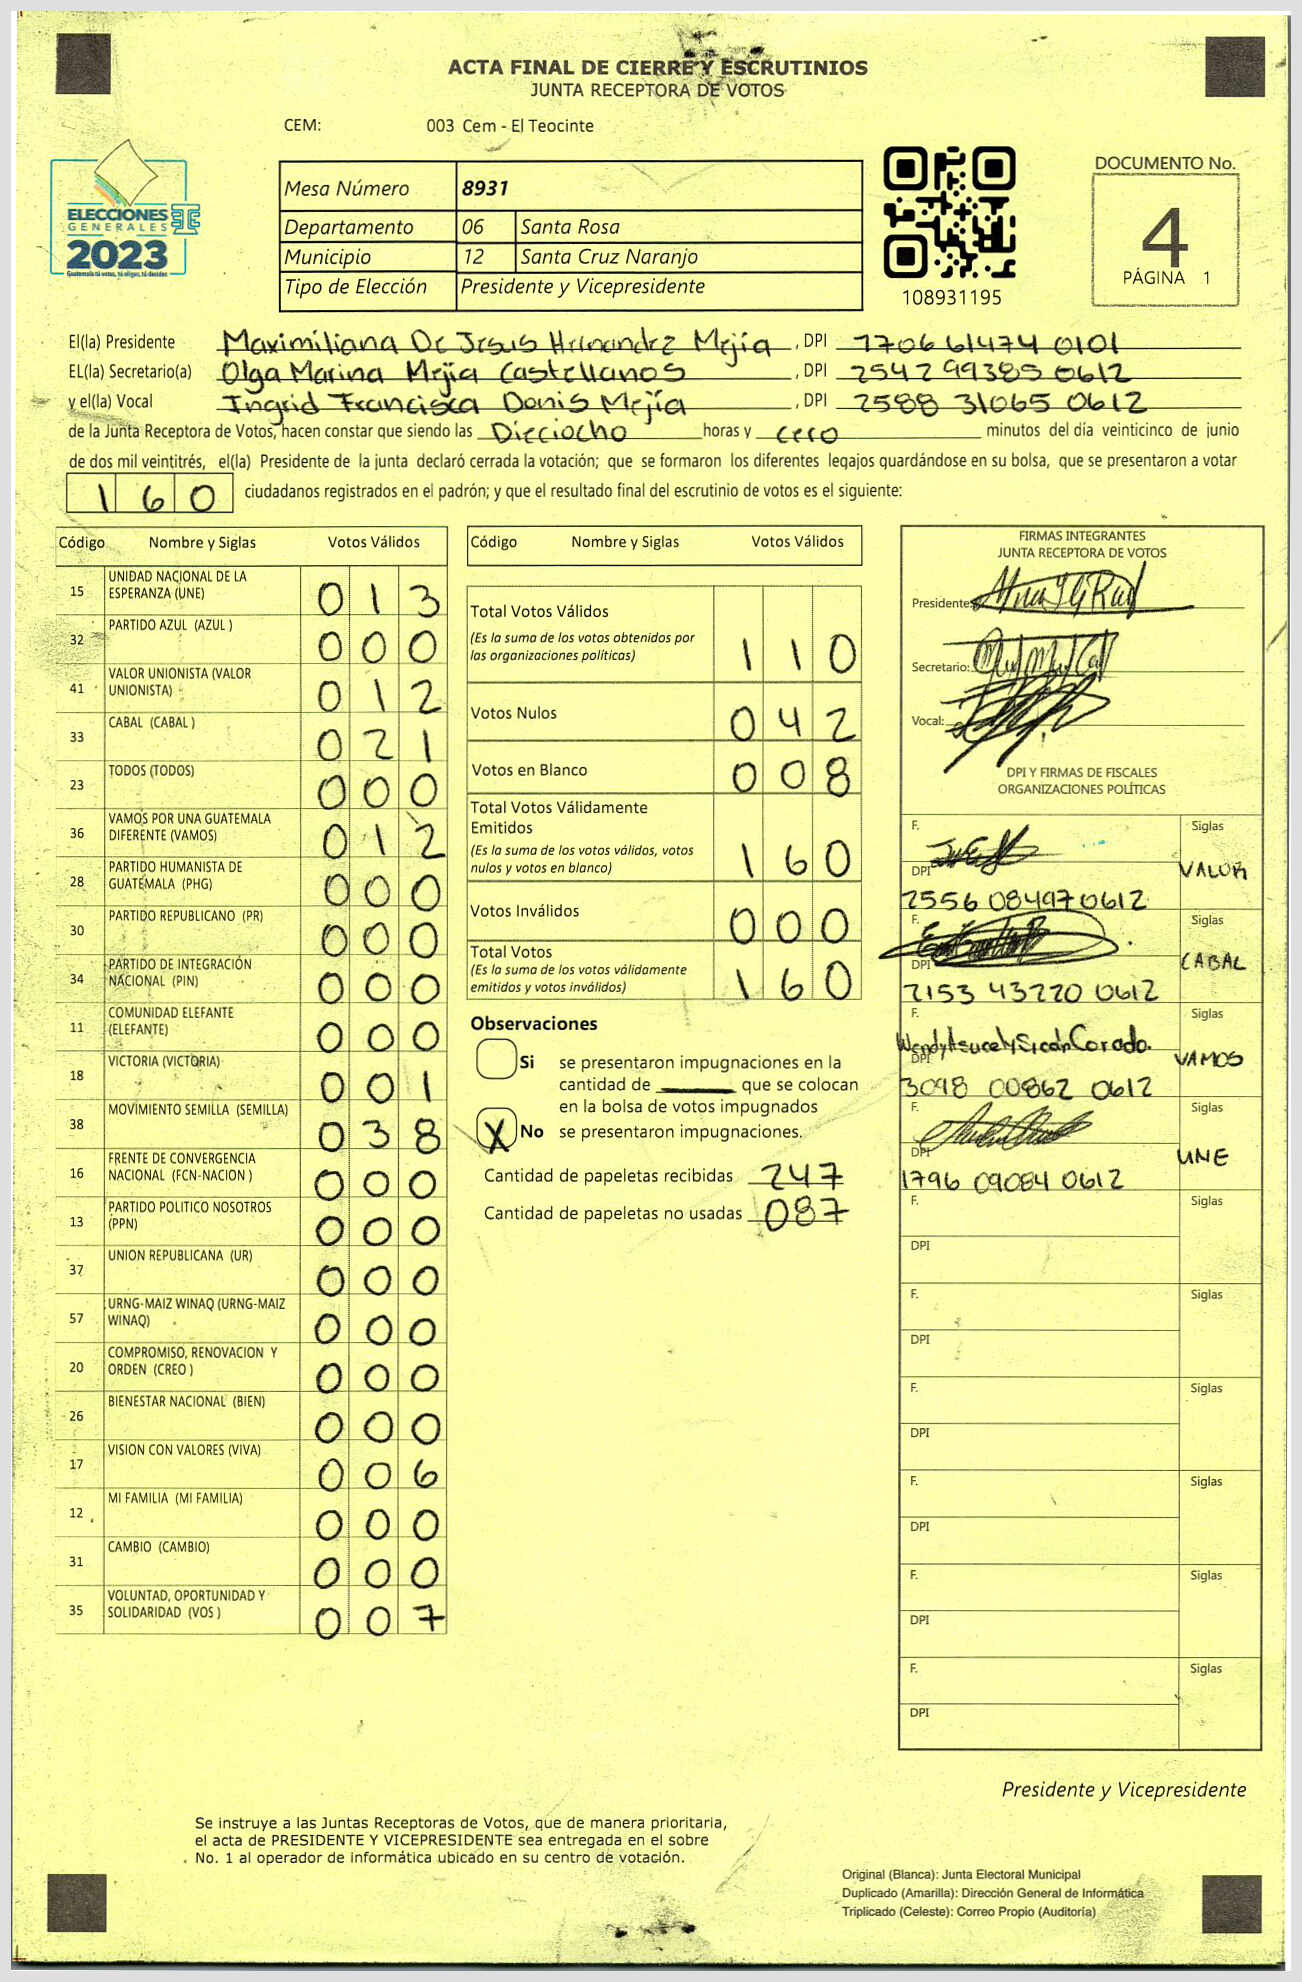 ACTA FINAL DE CIERRE Y ESCRUTINIOS
JUNTA RECEPTORA DE VOTOS
CEM: 003 Cem - El Teocinte
ELECCIONES
GENERALES
2023
Guatemala tú votas, tú eliges, tú decides
Mesa Número 8931
Departamento 06 Santa Rosa
Municipio 12 Santa Cruz Naranjo
Tipo de Elección Presidente y Vicepresidente
108931195
DOCUMENTO No.
4
PÁGINA 1
El(la) Presidente Maximiliana De Jesus Hernandez Mejía , DPI 1706 61474 0101
EL(la) Secretario(a) Olga Marina Mejía Castellanos , DPI 2542 99385 0612
y el(la) Vocal Ingrid Francisca Donis Mejía , DPI 2588 31065 0612
de la Junta Receptora de Votos, hacen constar que siendo las Dieciocho horas y cero minutos del día veinticinco de junio
de dos mil veintitrés, el(la) Presidente de la junta declaró cerrada la votación; que se formaron los diferentes legajos guardándose en su bolsa, que se presentaron a votar
160 ciudadanos registrados en el padrón; y que el resultado final del escrutinio de votos es el siguiente:
Código Nombre y Siglas Votos Válidos
15 UNIDAD NACIONAL DE LA ESPERANZA (UNE) 013
32 PARTIDO AZUL (AZUL ) 000
41 VALOR UNIONISTA (VALOR UNIONISTA) 012
33 CABAL (CABAL ) 021
23 TODOS (TODOS) 000
36 VAMOS POR UNA GUATEMALA DIFERENTE (VAMOS) 012
28 PARTIDO HUMANISTA DE GUATEMALA (PHG) 000
30 PARTIDO REPUBLICANO (PR) 000
34 PARTIDO DE INTEGRACIÓN NACIONAL (PIN) 000
11 COMUNIDAD ELEFANTE (ELEFANTE) 000
18 VICTORIA (VICTORIA) 001
38 MOVIMIENTO SEMILLA (SEMILLA) 038
16 FRENTE DE CONVERGENCIA NACIONAL (FCN-NACION ) 000
13 PARTIDO POLITICO NOSOTROS (PPN) 000
37 UNION REPUBLICANA (UR) 000
57 URNG-MAIZ WINAQ (URNG-MAIZ WINAQ) 000
20 COMPROMISO, RENOVACION Y ORDEN (CREO ) 000
26 BIENESTAR NACIONAL (BIEN) 000
17 VISION CON VALORES (VIVA) 006
12 MI FAMILIA (MI FAMILIA) 000
31 CAMBIO (CAMBIO) 000
35 VOLUNTAD, OPORTUNIDAD Y SOLIDARIDAD (VOS ) 007
Código Nombre y Siglas Votos Válidos
Total Votos Válidos 110
(Es la suma de los votos obtenidos por
las organizaciones políticas)
Votos Nulos 042
Votos en Blanco 008
Total Votos Válidamente
Emitidos 160
(Es la suma de los votos válidos, votos
nulos y votos en blanco)
Votos Inválidos 000
Total Votos 160
(Es la suma de los votos válidamente
emitidos y votos inválidos)
Observaciones
Si se presentaron impugnaciones en la
cantidad de que se colocan
en la bolsa de votos impugnados
X No se presentaron impugnaciones.
Cantidad de papeletas recibidas 247
Cantidad de papeletas no usadas 087
FIRMAS INTEGRANTES
JUNTA RECEPTORA DE VOTOS
Presidente:
Secretario:
Vocal:
DPI Y FIRMAS DE FISCALES
ORGANIZACIONES POLÍTICAS
F. Siglas
DPI VALOR
2556 08497 0612
F. Siglas
DPI CABAL
2153 43220 0612
F. Siglas
Wendy Corado.
DPI VAMOS
3098 00862 0612
F. Siglas
DPI UNE
1796 09084 0612
F. Siglas
DPI
F. Siglas
DPI
F. Siglas
DPI
F. Siglas
DPI
F. Siglas
DPI
F. Siglas
DPI
Presidente y Vicepresidente
Se instruye a las Juntas Receptoras de Votos, que de manera prioritaria,
el acta de PRESIDENTE Y VICEPRESIDENTE sea entregada en el sobre
No. 1 al operador de informática ubicado en su centro de votación.
Original (Blanca): Junta Electoral Municipal
Duplicado (Amarilla): Dirección General de Informática
Triplicado (Celeste): Correo Propio (Auditoría)